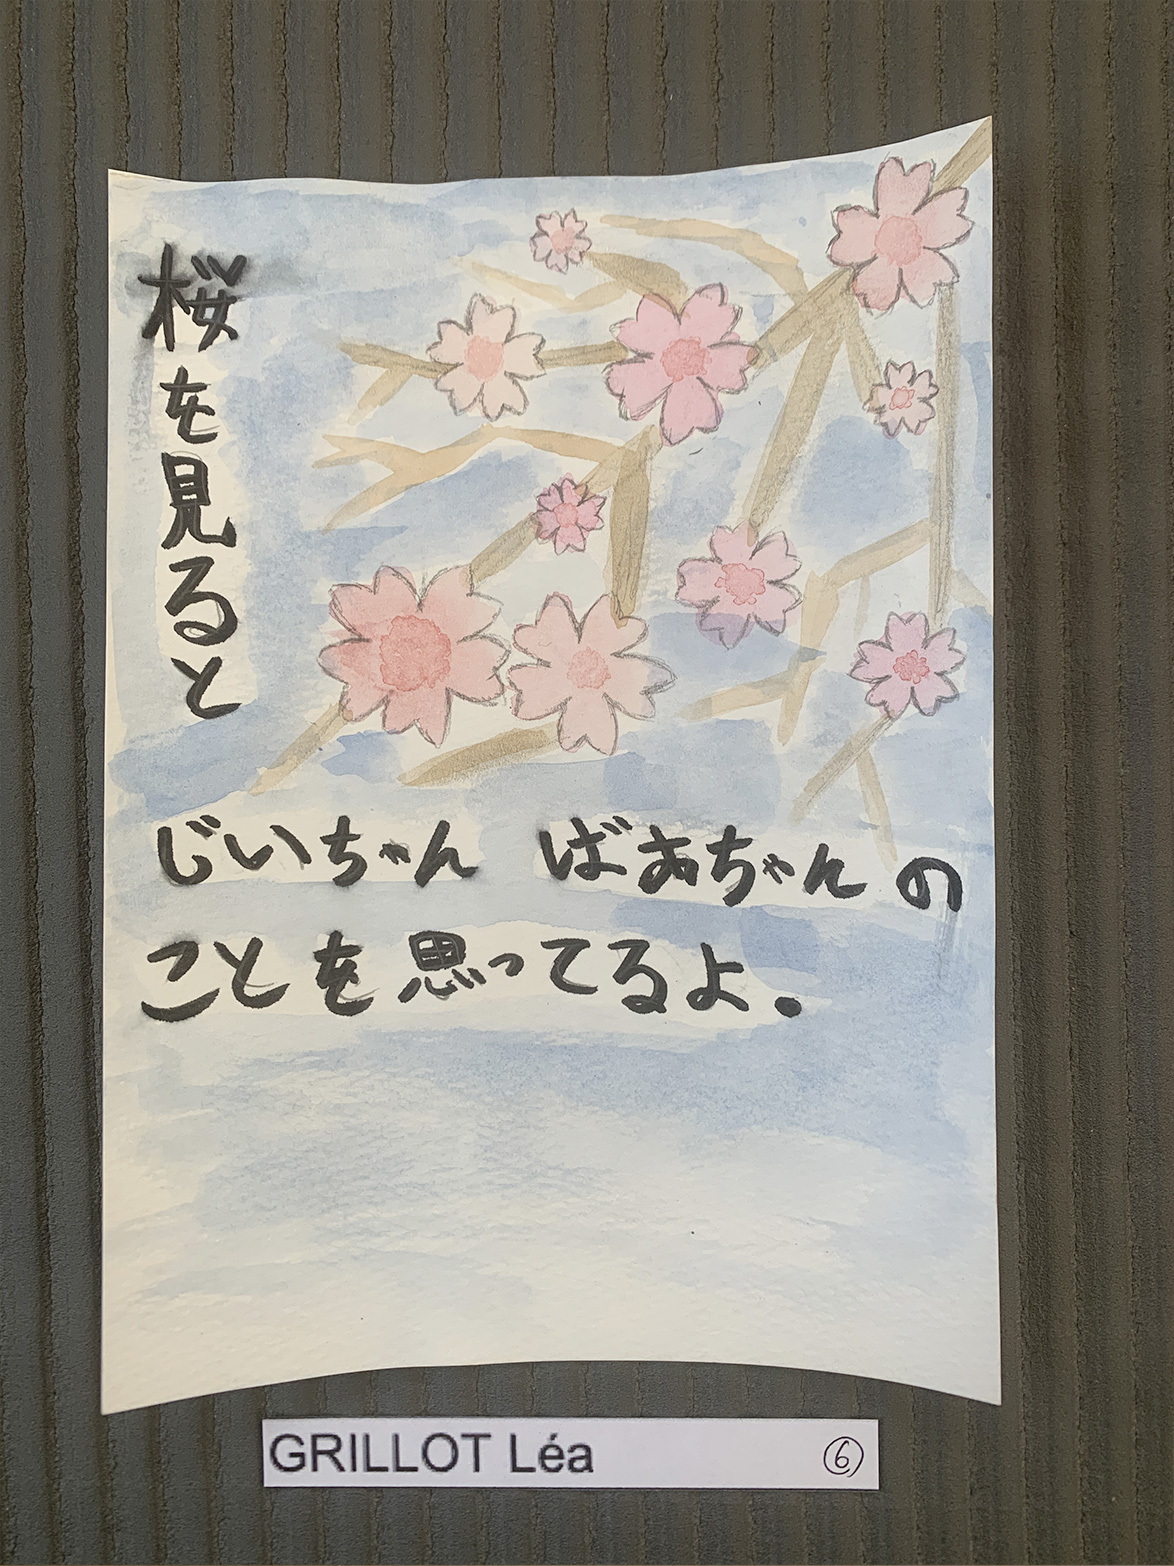 桜を見ると
じいちゃん ばあちゃんの
ことを思ってるよ.
GRILLOT Léa ⑥